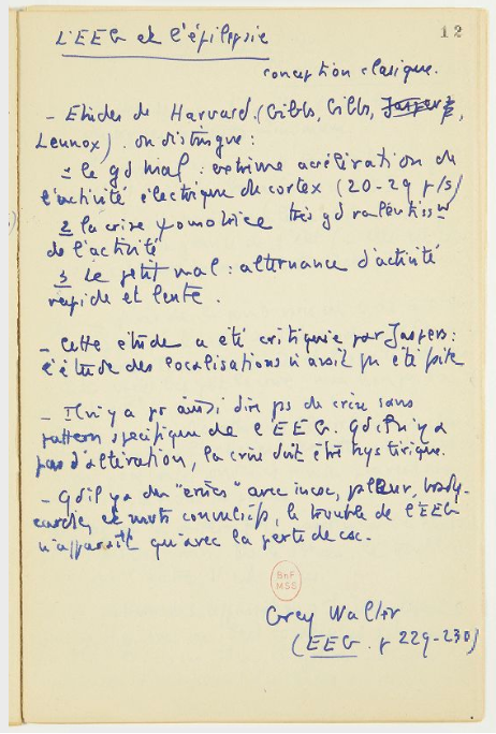 12
L'EEG et l'épilepsie
conception clasique.
- Etudes de Harvard. (Gibbs, Gibbs, Jaspers,
Lennox). on distingue :
1 le gd mal : extrême accélération de
l'activité électrique du cortex (20-29 p/s)
2 la crise ψomotrice très gd ralentissᵗ
de l'activité
3 Le petit mal : alternance d'activité
rapide et lente.
- Cette étude a été critiquée par Jaspers :
l'étude des localisations n'avait pas été faite
- Il n'y a pr ainsi dire ps de crise sans
pattern spécifique de l'EEG. Qd il n'y a
pas d'altération, la crise doit être hystérique.
- Qd il y a des "crises" avec incsc, pâleur, brady-
cardie, et mvts convulsifs, le trouble de l'EEG
n'apparaît qu'avec la perte de csc.
BnF
MSS
Grey Walter
(EEG. p 229-230)